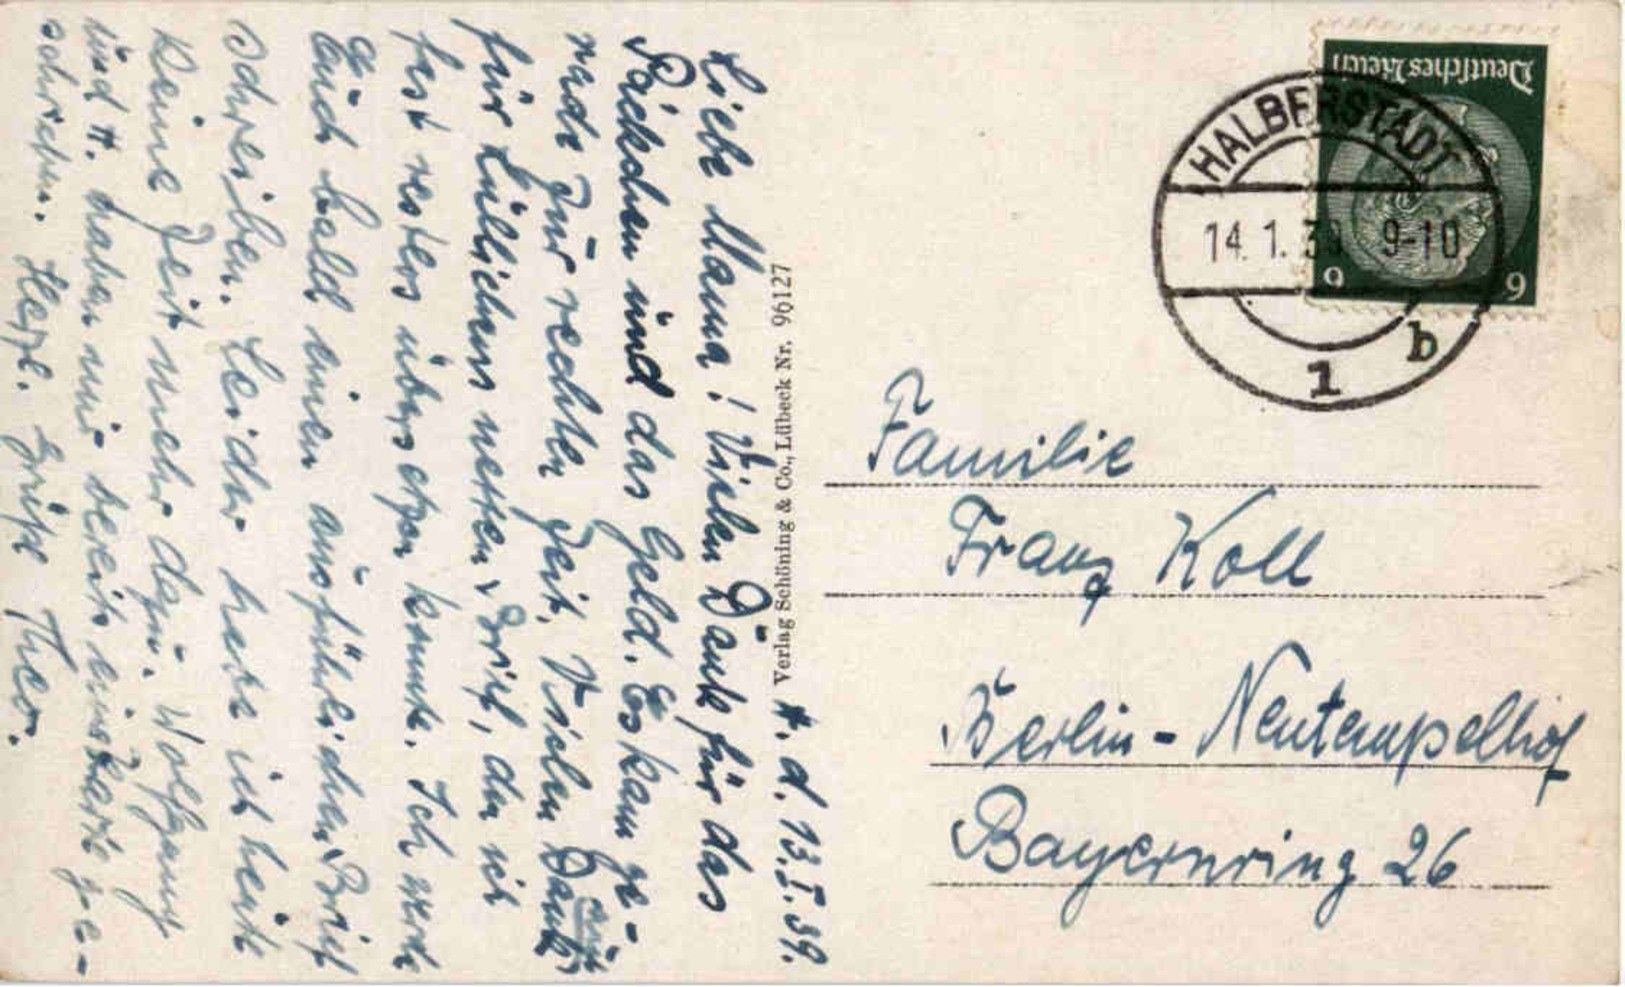 H. d. 13. I. 39.
Liebe Mama! Vielen Dank für das
Päckchen und das Geld. Es kam ge-
rade zur rechten Zeit. Vielen Dank auch
für Lullichens netten Brief, den ich
fast restlos übersetzen konnte. Ich werde
Euch bald einen ausführlichen Brief
schreiben. Leider habe ich heute
keine Zeit mehr dazu. Wolfgang
und H. haben mir bereits eine Karte ge-
schrieben. Herzl. Grüße Theo.
Verlag Schöning & Co., Lübeck Nr. 96127
Deutsches Reich
9 9
HALBERSTADT
14. 1. 39 9-10
1 b
Familie
Franz Koll
Berlin-Neutempelhof
Bayernring 26